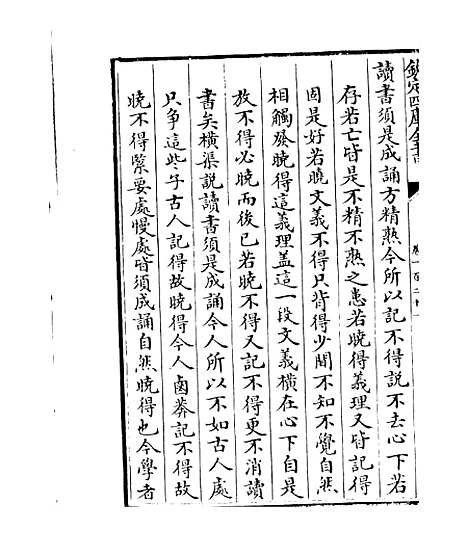 欽定四庫全書
讀書須是成誦方精熟今所以記不得說不去心下若
存若亡皆是不精不熟之患若曉得義理又皆記得
固是好若曉文義不得只背得少間不知不覺自然
相觸發曉得這義理蓋這一段文義橫在心下自是
放不得必曉而後已若曉不得又記不得更不消讀
書矣橫渠說讀書須是成誦今人所以不如古人處
只爭這些子古人記得故曉得今人鹵莽記不得故
曉不得緊要處慢處皆須成誦自然曉得也今學者